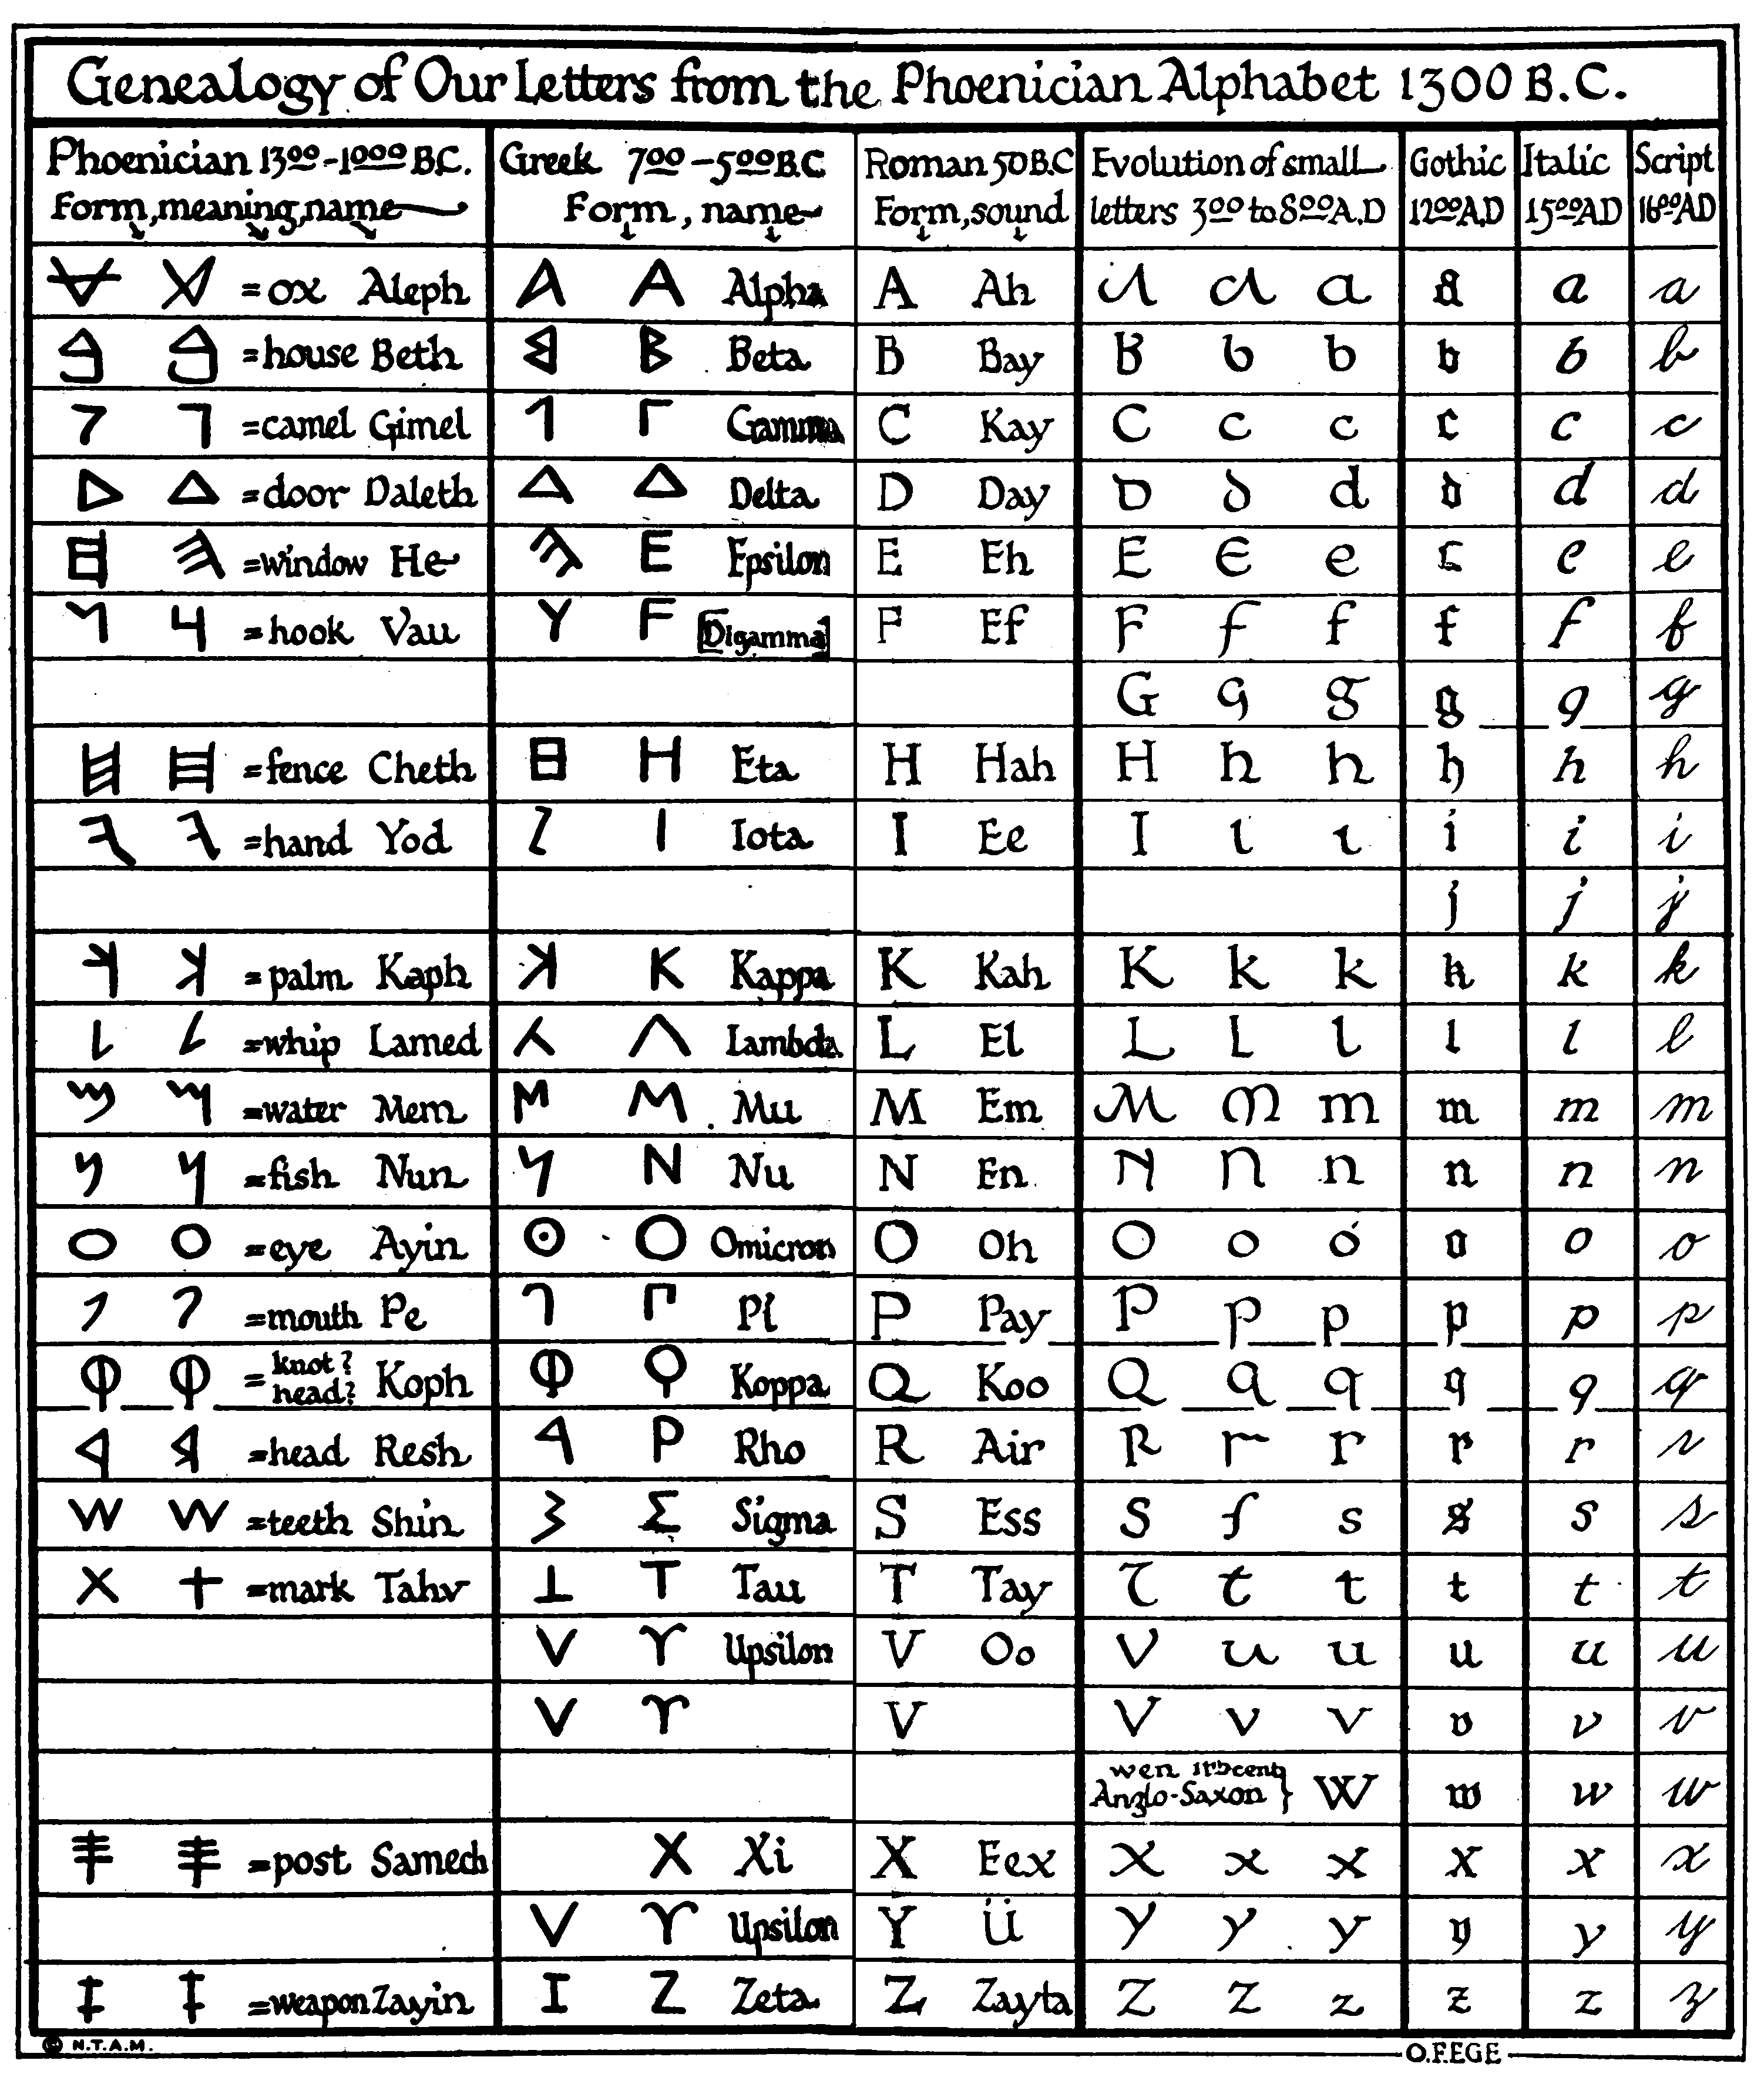 Genealogy of Our Letters from the Phoenician Alphabet 1300 B.C.
Phoenician 1300-1000 B.C. Form, meaning, name
Greek 700-500 B.C Form, name
Roman 50 B.C Form, sound
Evolution of small letters 300 to 800 A.D
Gothic 1200 A.D
Italic 1500 AD
Script 1600 AD
=ox Aleph A A Alpha A Ah a a a a a a
=house Beth B B Beta B Bay B b b b b b
=camel Gimel 1 Γ Gamma C Kay C c c c c c
=door Daleth Δ Δ Delta D Day D d d d d d
=window He E Epsilon E Eh E e e e e e
=hook Vau Y F [Digamma] F Ef F f f f f f
G g g g g g
=fence Cheth H Eta H Hah H h h h h h
=hand Yod I Iota I Ee I ı ı i i i
j j j
=palm Kaph K Kappa K Kah K k k k k k
=whip Lamed Λ Lambda L El L L l l l l
=water Mem M M Mu M Em M m m m m m
=fish Nun N Nu N En N n n n n n
=eye Ayin ⊙ O Omicron O Oh O o ó o o o
=mouth Pe Pi P Pay P p p p p p
=knot? head? Koph Φ Ϙ Koppa Q Koo Q q q q q q
=head Resh P Rho R Air R r r r r r
=teeth Shin Σ Sigma S Ess S ſ s s s s
=mark Tahv ⊥ T Tau T Tay T t t t t t
V ϒ Upsilon V Oo V u u u u u
V ϒ V V v v v v v
wen 11th cent Anglo-Saxon } W w w w
=post Samech X Xi X Eex X x x x x x
V ϒ Upsilon Y Ü y y y y y y
=weapon Zayin I Z Zeta Z Zayta Z z z z z z
© N.T.A.M.
O.F.EGE